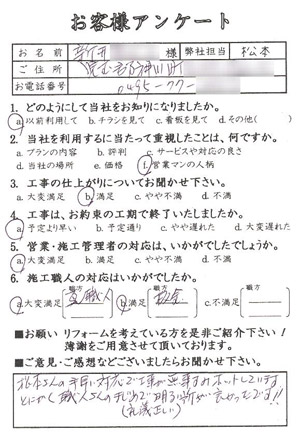 お客様アンケート
お名前 新井 様 弊社担当 松本
ご住所 児玉郡神川町
お電話番号 0495-77-
1. どのようにして当社をお知りになりましたか。
a.以前利用して b.チラシを見て c.看板を見て d.その他( )
2. 当社を利用するに当たって重視したことは、何ですか。
a.プランの内容 b.評判 c.サービスや対応の良さ
d.当社の場所 e.価格 f.営業マンの人柄
3. 工事の仕上がりについてお聞かせ下さい。
a.大変満足 b.満足 c.やや不満 d.不満
4. 工事は、お約束の工期で終了いたしましたか。
a.予定より早い b.予定通り c.やや遅れた d.大変遅れた
5. 営業・施工管理者の対応は、いかがでしたでしょうか。
a.大変満足 b.満足 c.やや不満 d.不満
6. 施工職人の対応はいかがでしたか。
a.大変満足 職方 b.満足 職方 板金 c.不満 職方
■お願い リフォームを考えている方を是非ご紹介下さい!
薄謝をご用意させて頂いております。
■ご意見・ご感想などございましたらお聞かせ下さい。
松本さんの手早い対応で工事が無事すみホットしています。
とにかく職人さんがまじめで明るい所が良かったです!!
(礼儀正しい)